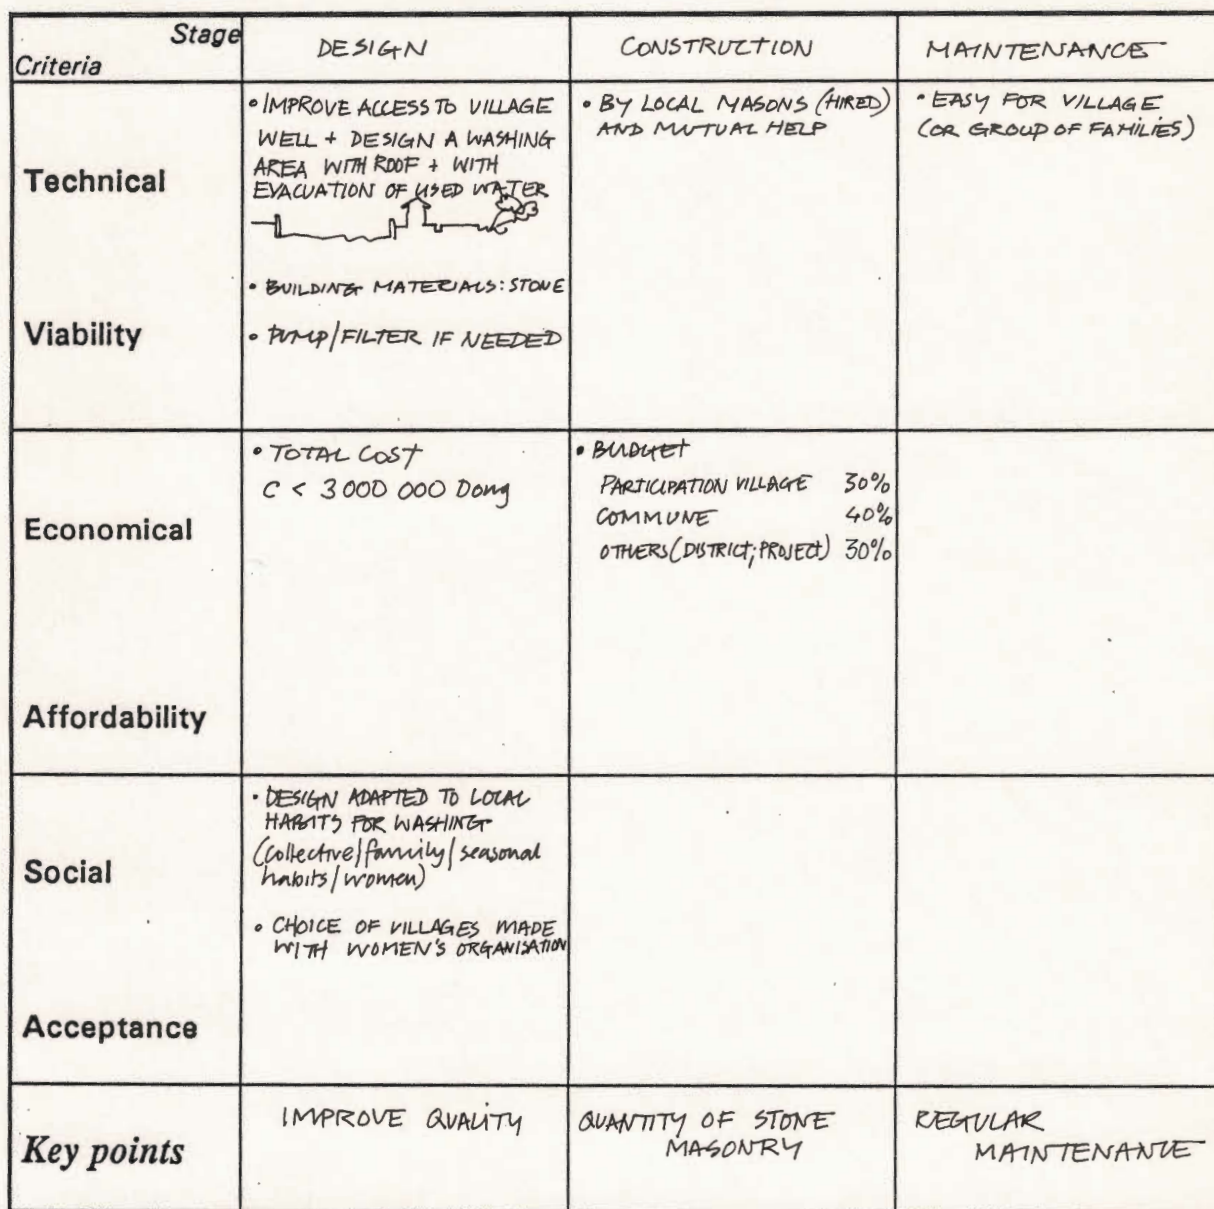 Stage
Criteria
DESIGN
CONSTRUCTION
MAINTENANCE
Technical
Viability
• IMPROVE ACCESS TO VILLAGE
WELL + DESIGN A WASHING
AREA WITH ROOF + WITH
EVACUATION OF USED WATER
• BUILDING MATERIALS: STONE
• PUMP/FILTER IF NEEDED
• BY LOCAL MASONS (HIRED)
AND MUTUAL HELP
• EASY FOR VILLAGE
(OR GROUP OF FAMILIES)
Economical
Affordability
• TOTAL COST
C < 3000 000 Dong
• BUDGET
PARTICIPATION VILLAGE 30%
COMMUNE 40%
OTHERS (DISTRICT; PROJECT) 30%
Social
Acceptance
• DESIGN ADAPTED TO LOCAL
HABITS FOR WASHING
(collective/family/seasonal
habits/women)
• CHOICE OF VILLAGES MADE
WITH WOMEN'S ORGANISATION
Key points
IMPROVE QUALITY
QUANTITY OF STONE
MASONRY
REGULAR
MAINTENANCE